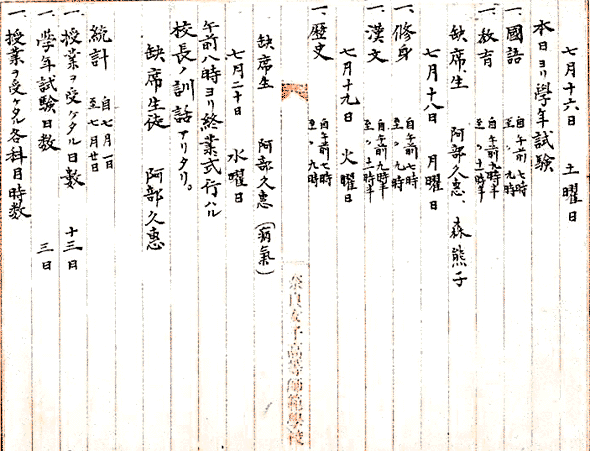 七月十六日 土曜日
本日ヨリ學年試驗
一、國語 自午前七時 至〃九時
一、教育 自午前九時半 至〃十一時半
缺席生 阿部久惠、森熊子
七月十八日 月曜日
一、修身 自午前七時 至〃九時
一、漢文 自午前九時半 至〃十一時半
七月十九日 火曜日
一、歴史 自午前七時 至〃九時
奈良女子高等師範學校
缺席生 阿部久惠(病氣)
七月二十日 水曜日
午前八時ヨリ終業式行ハル
校長ノ訓話アリタリ。
缺席生徒 阿部久惠
統計 自七月一日 至七月廿日
一、授業ヲ受ケタル日數 十三日
一、學年試驗日数 三日
一、授業ヲ受ケタル各科目時数